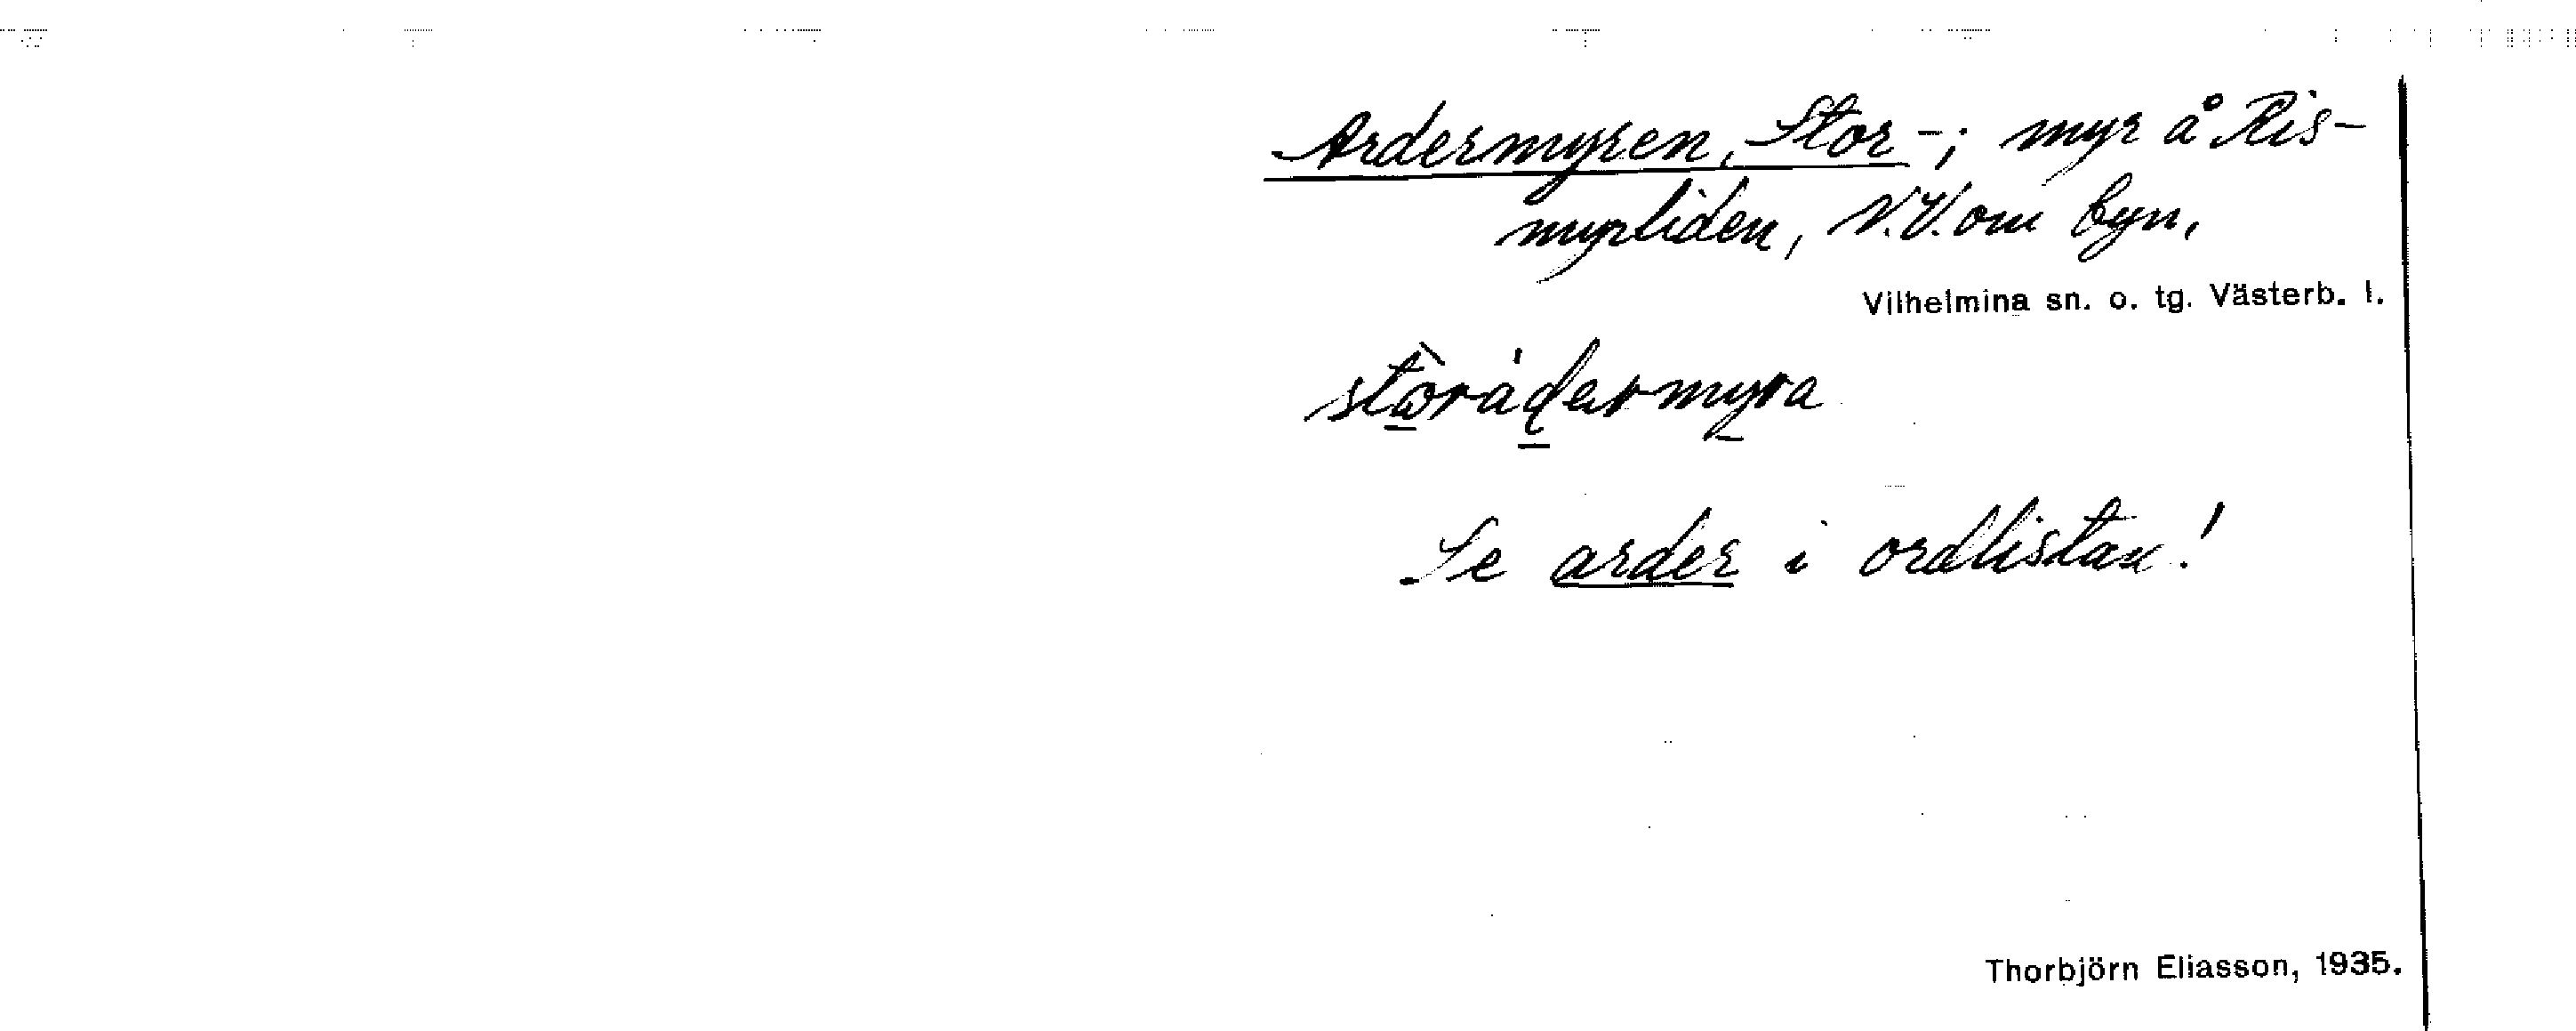 Ardermyren, Stor-; myr å Ris-
myrliden, N.V. om byn,
Vilhelmina sn. o. tg. Västerb. l.
Se arder i ordlistan!
Thorbjörn Eliasson, 1935.